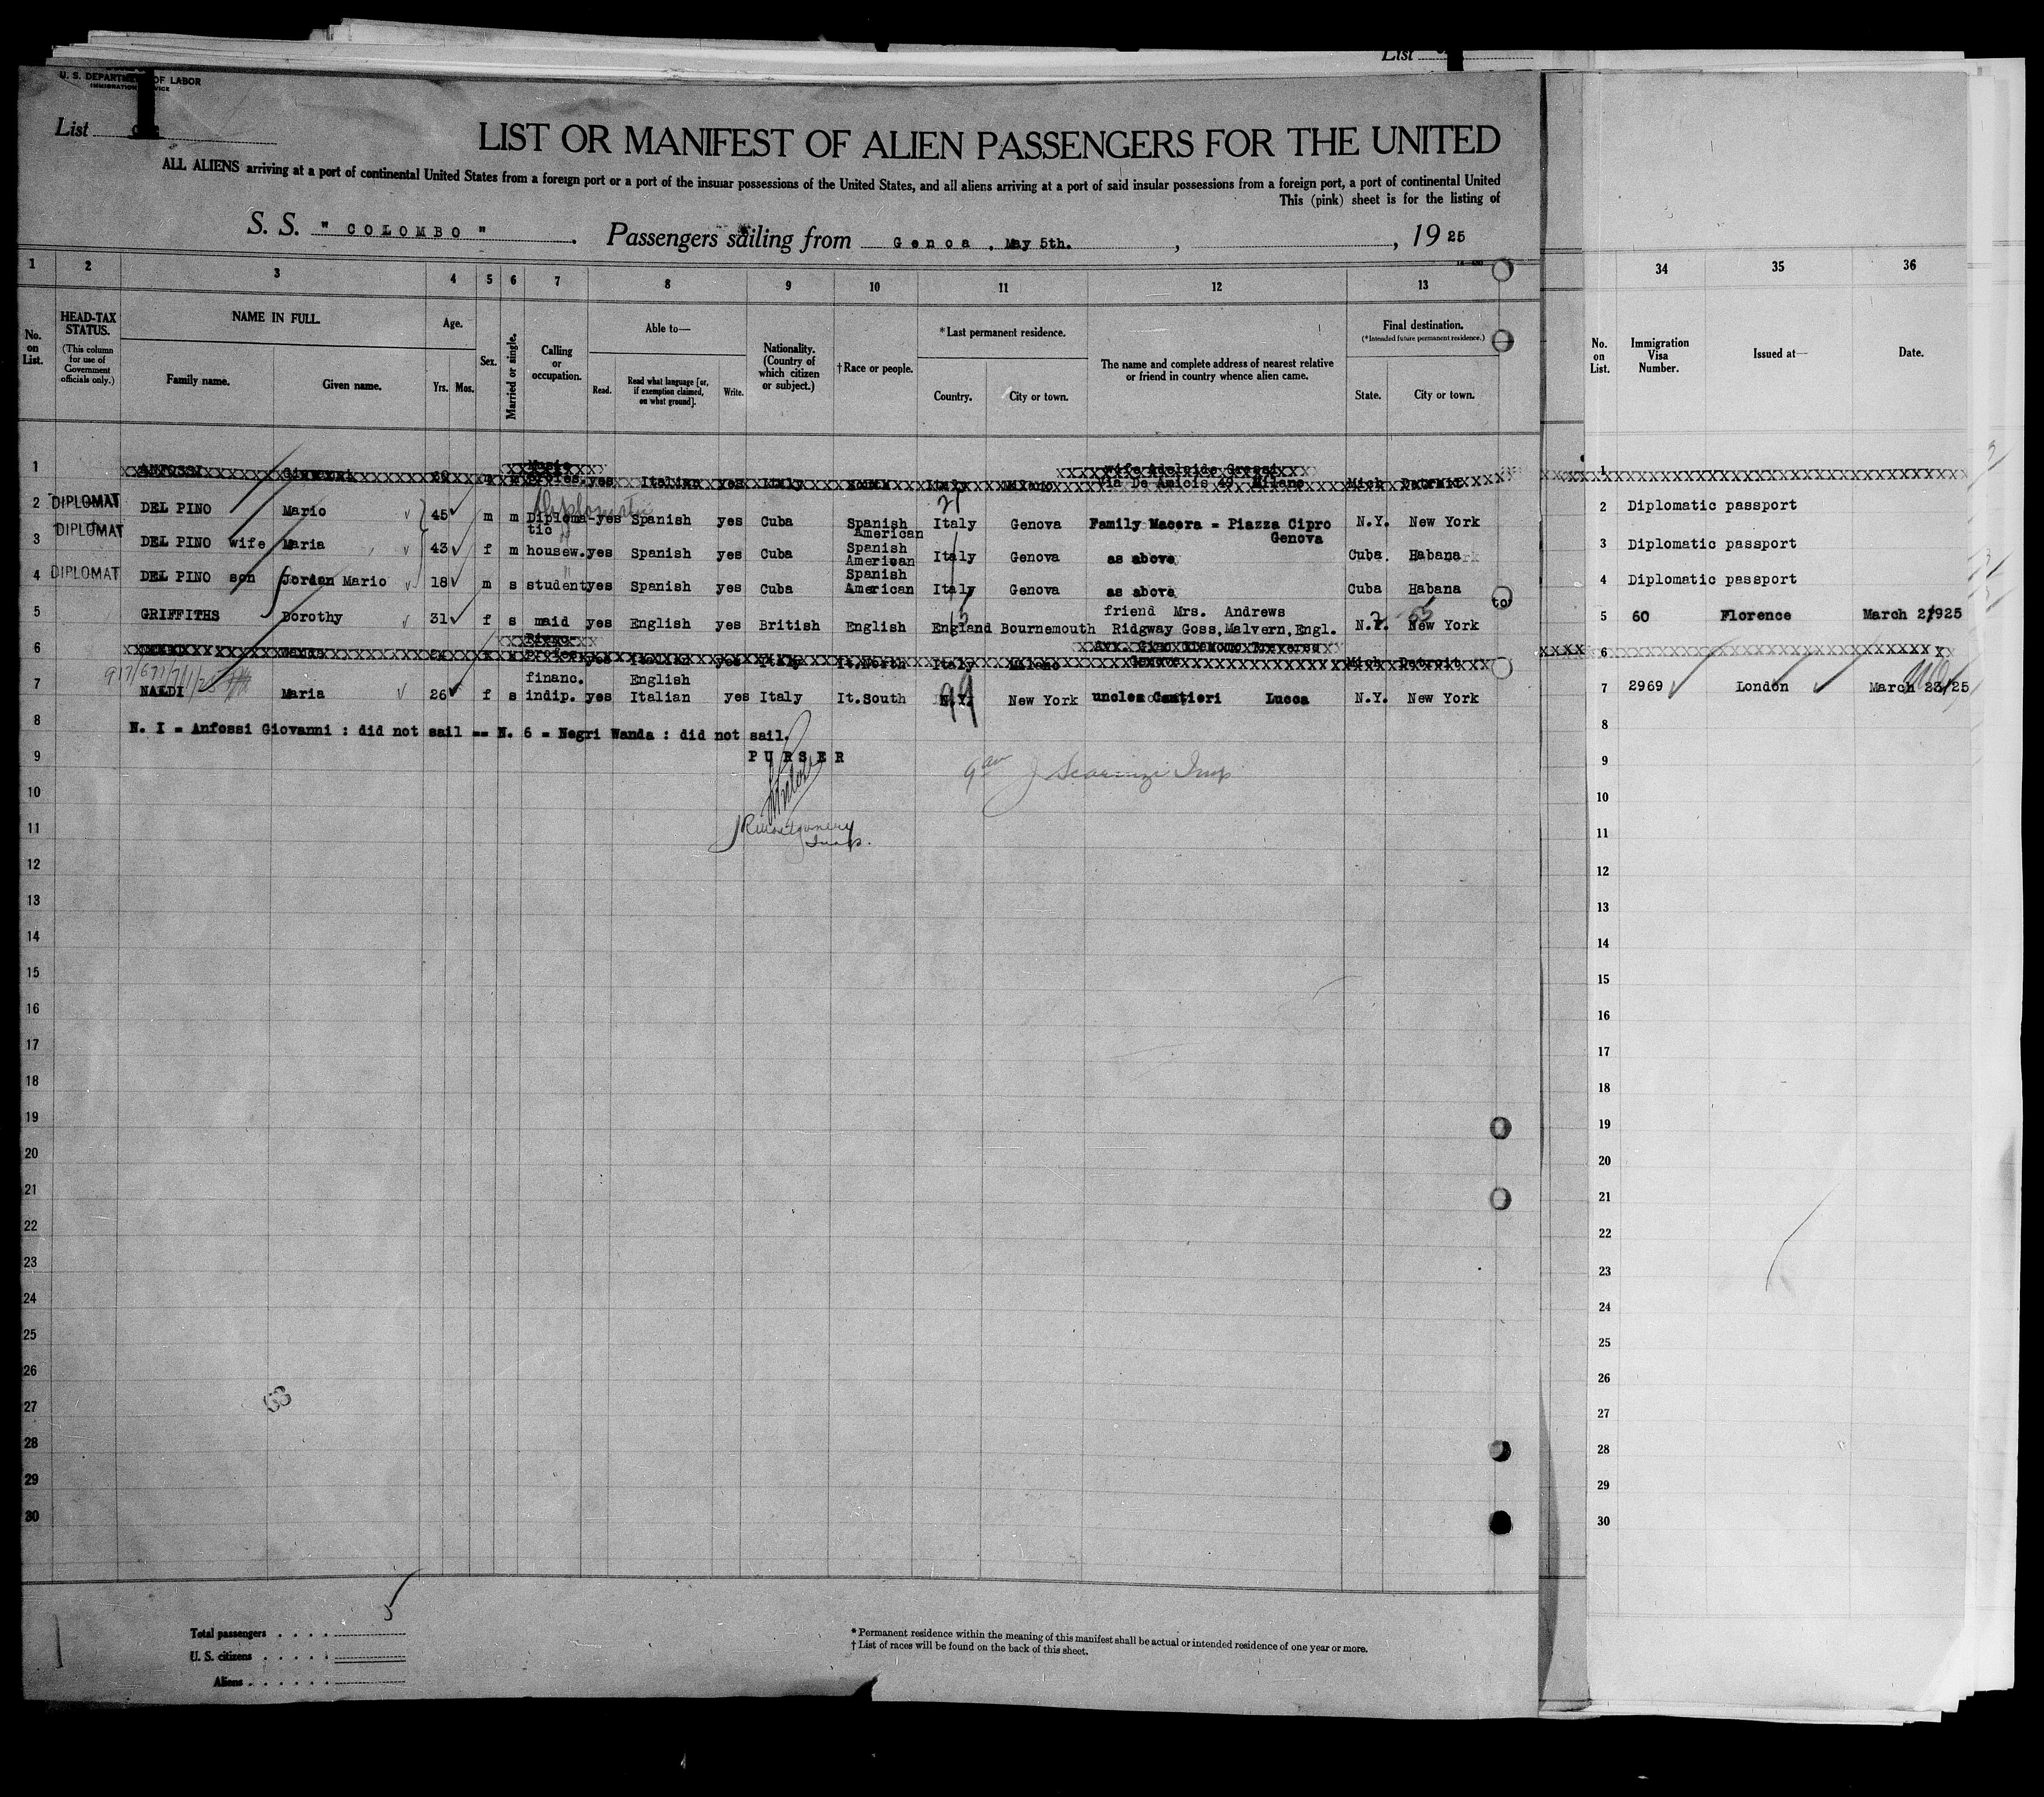 List
U. S. DEPARTMENT OF LABOR
IMMIGRATION SERVICE
List
LIST OR MANIFEST OF ALIEN PASSENGERS FOR THE UNITED
ALL ALIENS arriving at a port of continental United States from a foreign port or a port of the insular possessions of the United States, and all aliens arriving at a port of said insular possessions from a foreign port, a port of continental United
This (pink) sheet is for the listing of
S. S. " COLOMBO " . Passengers sailing from Genoa , May 5th. , , 19 25
1 2 3 4 5 6 7 8 9 10 11 12 13 34 35 36
No. on List.
HEAD-TAX STATUS.
(This column for use of Government officials only.)
NAME IN FULL.
Family name. Given name.
Age.
Yrs. Mos.
Sex.
Married or single.
Calling or occupation.
Able to—
Read. Read what language [or, if exemption claimed, on what ground]. Write.
Nationality. (Country of which citizen or subject.)
†Race or people.
*Last permanent residence.
Country. City or town.
The name and complete address of nearest relative or friend in country whence alien came.
Final destination.
(*Intended future permanent residence.)
State. City or town.
No. on List.
Immigration Visa Number.
Issued at—
Date.
1 ANFOSSI Giovanni 60 m m Music profes. yes Italian yes Italy North Italy Milano wife Adelaide Grossi Via De Amicis 49 Milano Mich Detroit 1
2 DIPLOMAT DEL PINO Mario 45 m m Diploma-tic yes Spanish yes Cuba Spanish American Italy Genova Family Macera = Piazza Cipro Genova N.Y. New York 2 Diplomatic passport
Diplomatic
21
3 DIPLOMAT DEL PINO wife Maria 43 f m housew. yes Spanish yes Cuba Spanish American Italy Genova as above Cuba. Habana 3 Diplomatic passport
4 DIPLOMAT DEL PINO son Jordan Mario 18 m s student yes Spanish yes Cuba Spanish American Italy Genova as above Cuba Habana 4 Diplomatic passport
5 GRIFFITHS Dorothy 31 f s maid yes English yes British English England Bournemouth friend Mrs. Andrews Ridgway Goss,Malvern,Engl. N.Y. New York to 5 60 Florence March 21925
6 Wanda f s Piano- profes. yes Italian yes Italy It.North Italy Milano Genova Mich Detroit 6
7 NALDI Maria 26 f s financ. indip. yes English Italian yes Italy It.South N.Y. New York uncle Cantieri Lucca N.Y. New York 7 2969 London March 23/25
99
8 N. I = Anfossi Giovanni : did not sail == N. 6 = Negri Wanda : did not sail. 8
9 PURSER 9
J Scarinzi Insp
10 10
11 R Montgomery Insp. 11
12 12
13 13
14 14
15 15
16 16
17 17
18 18
19 19
20 20
21 21
22 22
23 23
24 24
25 25
26 26
27 63 27
28 28
29 29
30 30
5
Total passengers . . . .
U. S. citizens . . . . .
Aliens . . . . . .
* Permanent residence within the meaning of this manifest shall be actual or intended residence of one year or more.
† List of races will be found on the back of this sheet.